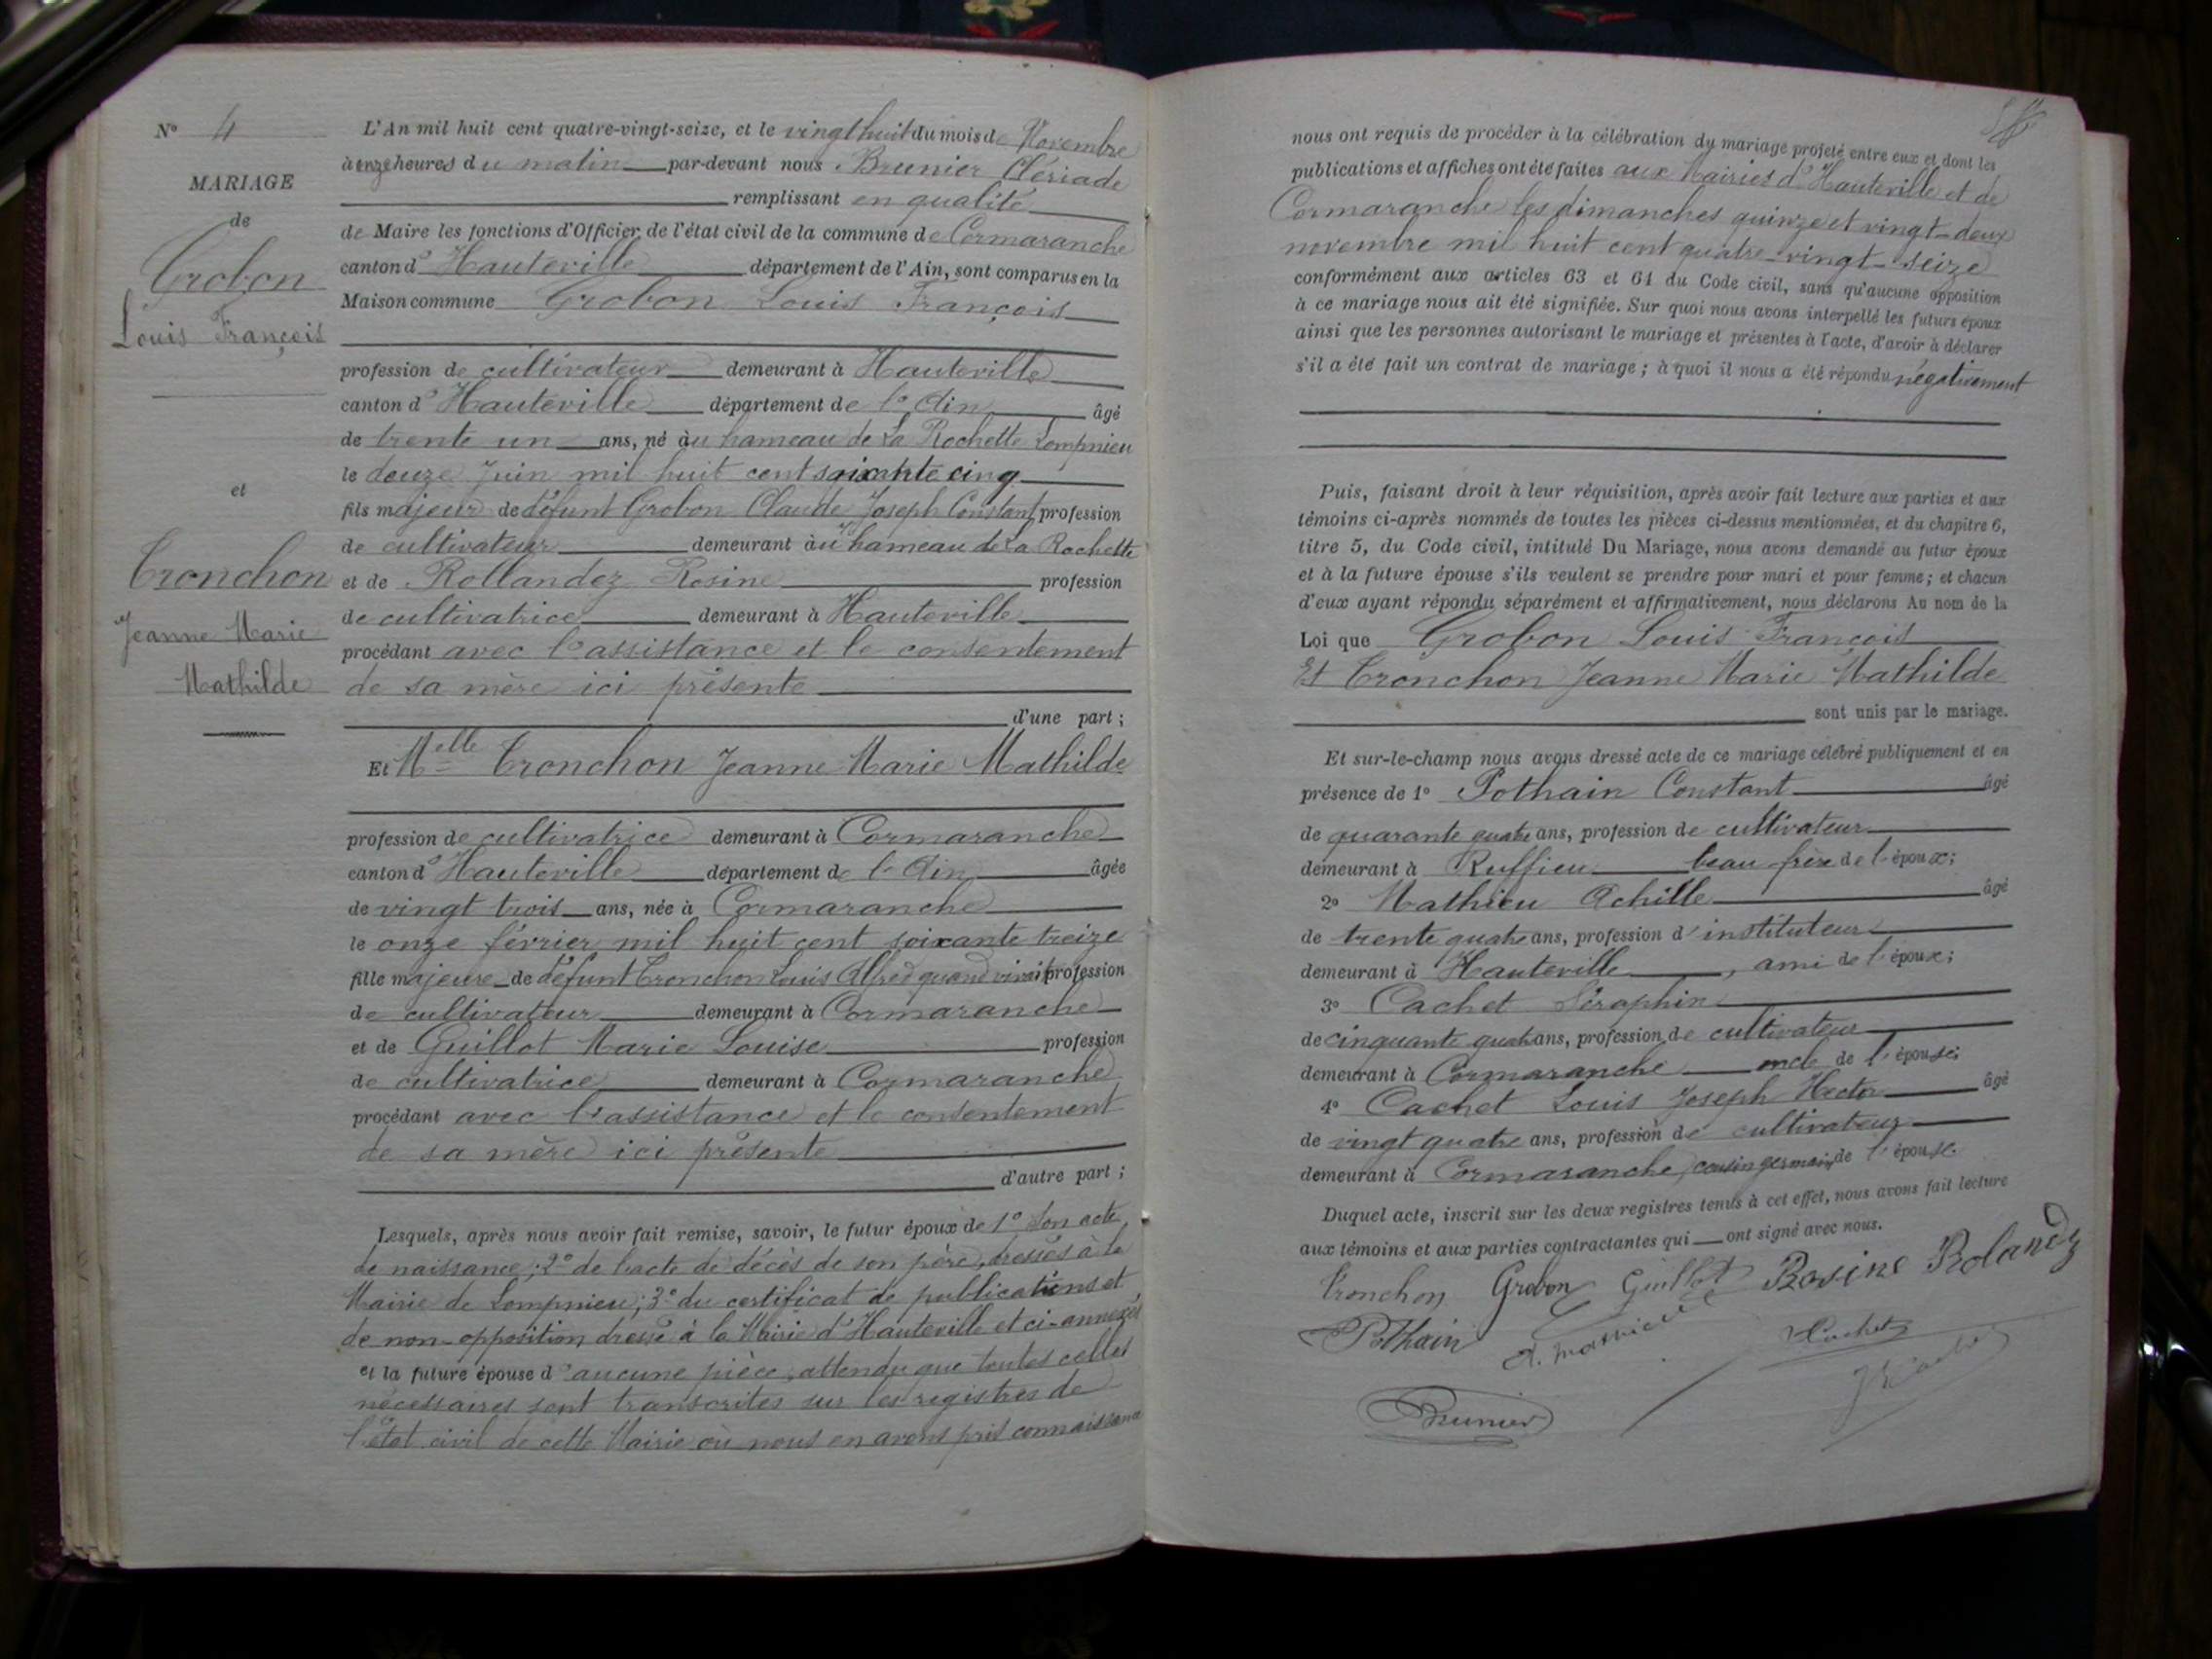 N° 4
MARIAGE
de
Grobon
Louis François
et
Tronchon
Jeanne Marie
Mathilde
L'An mil huit cent quatre-vingt-seize, et le vingt huit du mois de Novembre
à onze heures du matin par-devant nous Brunier Clériade
remplissant en qualité
de Maire les fonctions d'Officier de l'état civil de la commune de Cormaranche
canton d'Hauteville département de l'Ain, sont comparus en la
Maison commune Grobon Louis François
profession de cultivateur demeurant à Hauteville
canton d'Hauteville département de l'Ain âgé
de trente un ans, né au hameau de La Rochette Lompnieu
le douze Juin mil huit cent soixante cinq
fils majeur de défunt Grobon Claude Joseph Constant profession
de cultivateur demeurant au hameau de La Rochette
et de Rollandez Rosine profession
de cultivatrice demeurant à Hauteville
procédant avec l'assistance et le consentement
de sa mère ici présente
d'une part ;
Et Melle Tronchon Jeanne Marie Mathilde
profession de cultivatrice demeurant à Cormaranche
canton d'Hauteville département de l'Ain âgée
de vingt trois ans, née à Cormaranche
le onze février mil huit cent soixante treize
fille majeure de défunt Tronchon Louis Alfred quand vivait profession
de cultivateur demeurant à Cormaranche
et de Guillot Marie Louise profession
de cultivatrice demeurant à Cormaranche
procédant avec l'assistance et le consentement
de sa mère ici présente
d'autre part ;
Lesquels, après nous avoir fait remise, savoir, le futur époux de 1° Son acte
de naissance ; 2° de l'acte de décès de son père, dressés à la
Mairie de Lompnieu ; 3° du certificat de publications et
de non-opposition dressé à la Mairie d'Hauteville et ci-annexés
et la future épouse d'aucune pièce, attendu que toutes celles
nécessaires sont transcrites sur les registres de
l'état civil de cette Mairie où nous en avons pris connaissance
nous ont requis de procéder à la célébration du mariage projeté entre eux et dont les
publications et affiches ont été faites aux Mairies d'Hauteville et de
Cormaranche les dimanches quinze et vingt-deux
novembre mil huit cent quatre-vingt-seize
conformément aux articles 63 et 64 du Code civil, sans qu'aucune opposition
à ce mariage nous ait été signifiée. Sur quoi nous avons interpellé les futurs époux
ainsi que les personnes autorisant le mariage et présentes à l'acte, d'avoir à déclarer
s'il a été fait un contrat de mariage ; à quoi il nous a été répondu négativement
Puis, faisant droit à leur réquisition, après avoir fait lecture aux parties et aux
témoins ci-après nommés de toutes les pièces ci-dessus mentionnées, et du chapitre 6,
titre 5, du Code civil, intitulé Du Mariage, nous avons demandé au futur époux
et à la future épouse s'ils veulent se prendre pour mari et pour femme ; et chacun
d'eux ayant répondu séparément et affirmativement, nous déclarons Au nom de la
Loi que Grobon Louis François
Et Tronchon Jeanne Marie Mathilde
sont unis par le mariage.
Et sur-le-champ nous avons dressé acte de ce mariage célébré publiquement et en
présence de 1° Pothain Constant âgé
de quarante quatre ans, profession de cultivateur
demeurant à Ruffieu beau frère de l'époux ;
2° Mathieu Achille âgé
de trente quatre ans, profession d'instituteur
demeurant à Hauteville, ami de l'époux ;
3° Cachet Séraphin
de cinquante quatre ans, profession de cultivateur
demeurant à Cormaranche oncle de l'épouse ;
4° Cachet Louis Joseph Hector âgé
de vingt quatre ans, profession de cultivateur
demeurant à Cormaranche, cousin germain de l'épouse
Duquel acte, inscrit sur les deux registres tenus à cet effet, nous avons fait lecture
aux témoins et aux parties contractantes qui ont signé avec nous.
Tronchon Grobon Guillot Rosine Rolandez
Pothain A. Mathieu
Brunier